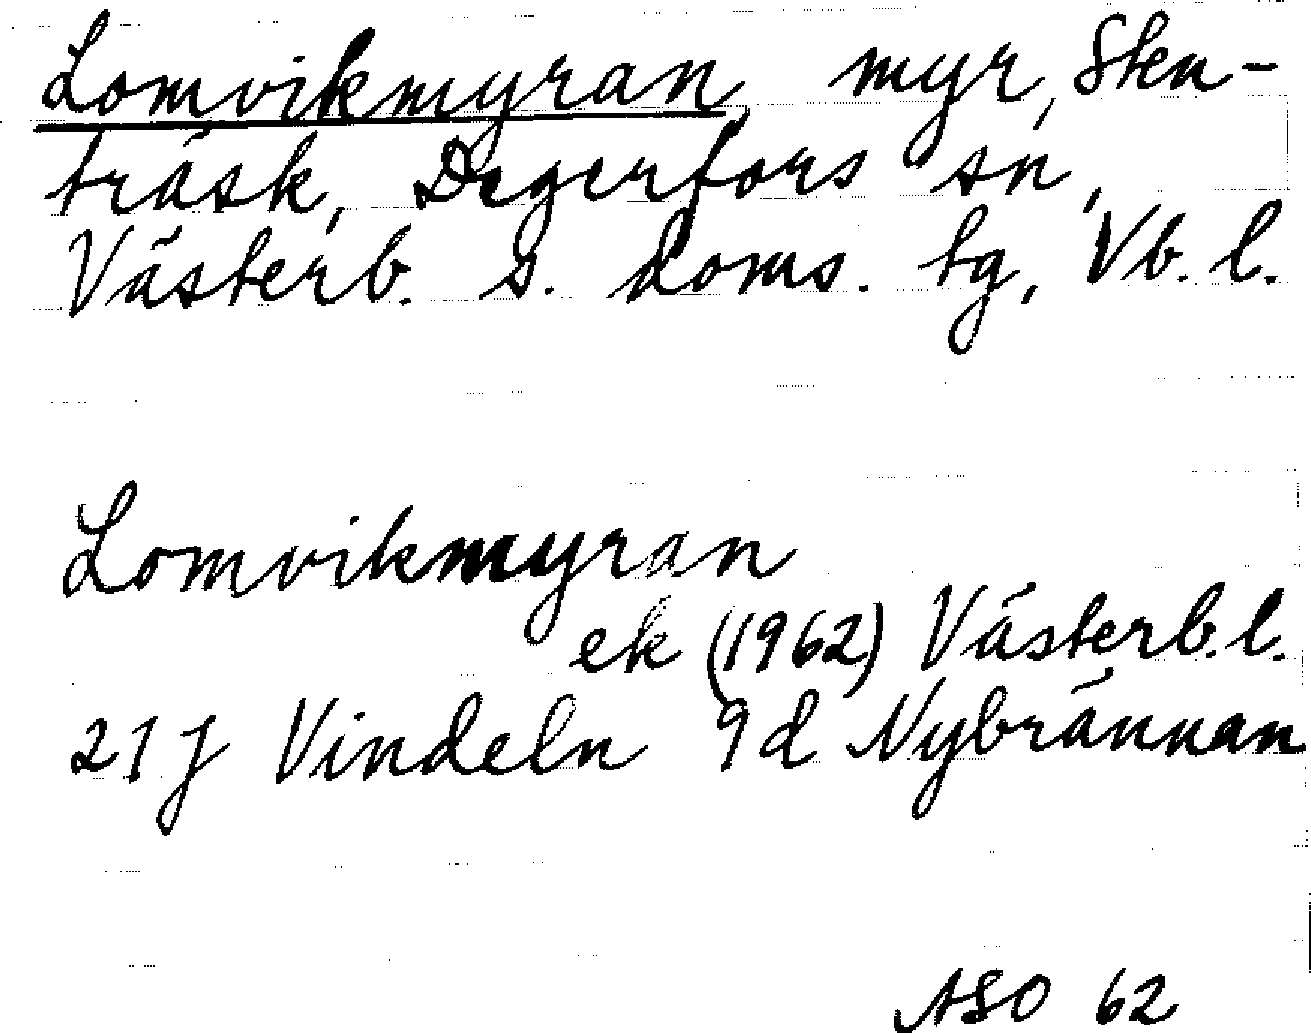 Lomvikmyran, myr, Sku-
träsk, Degerfors sn,
Västerb. s. doms. tg, Vb. l.
Lomvikmyran
ek (1962) Västerb. l.
21 J Vindeln 9d Nybrännan
ASO 62